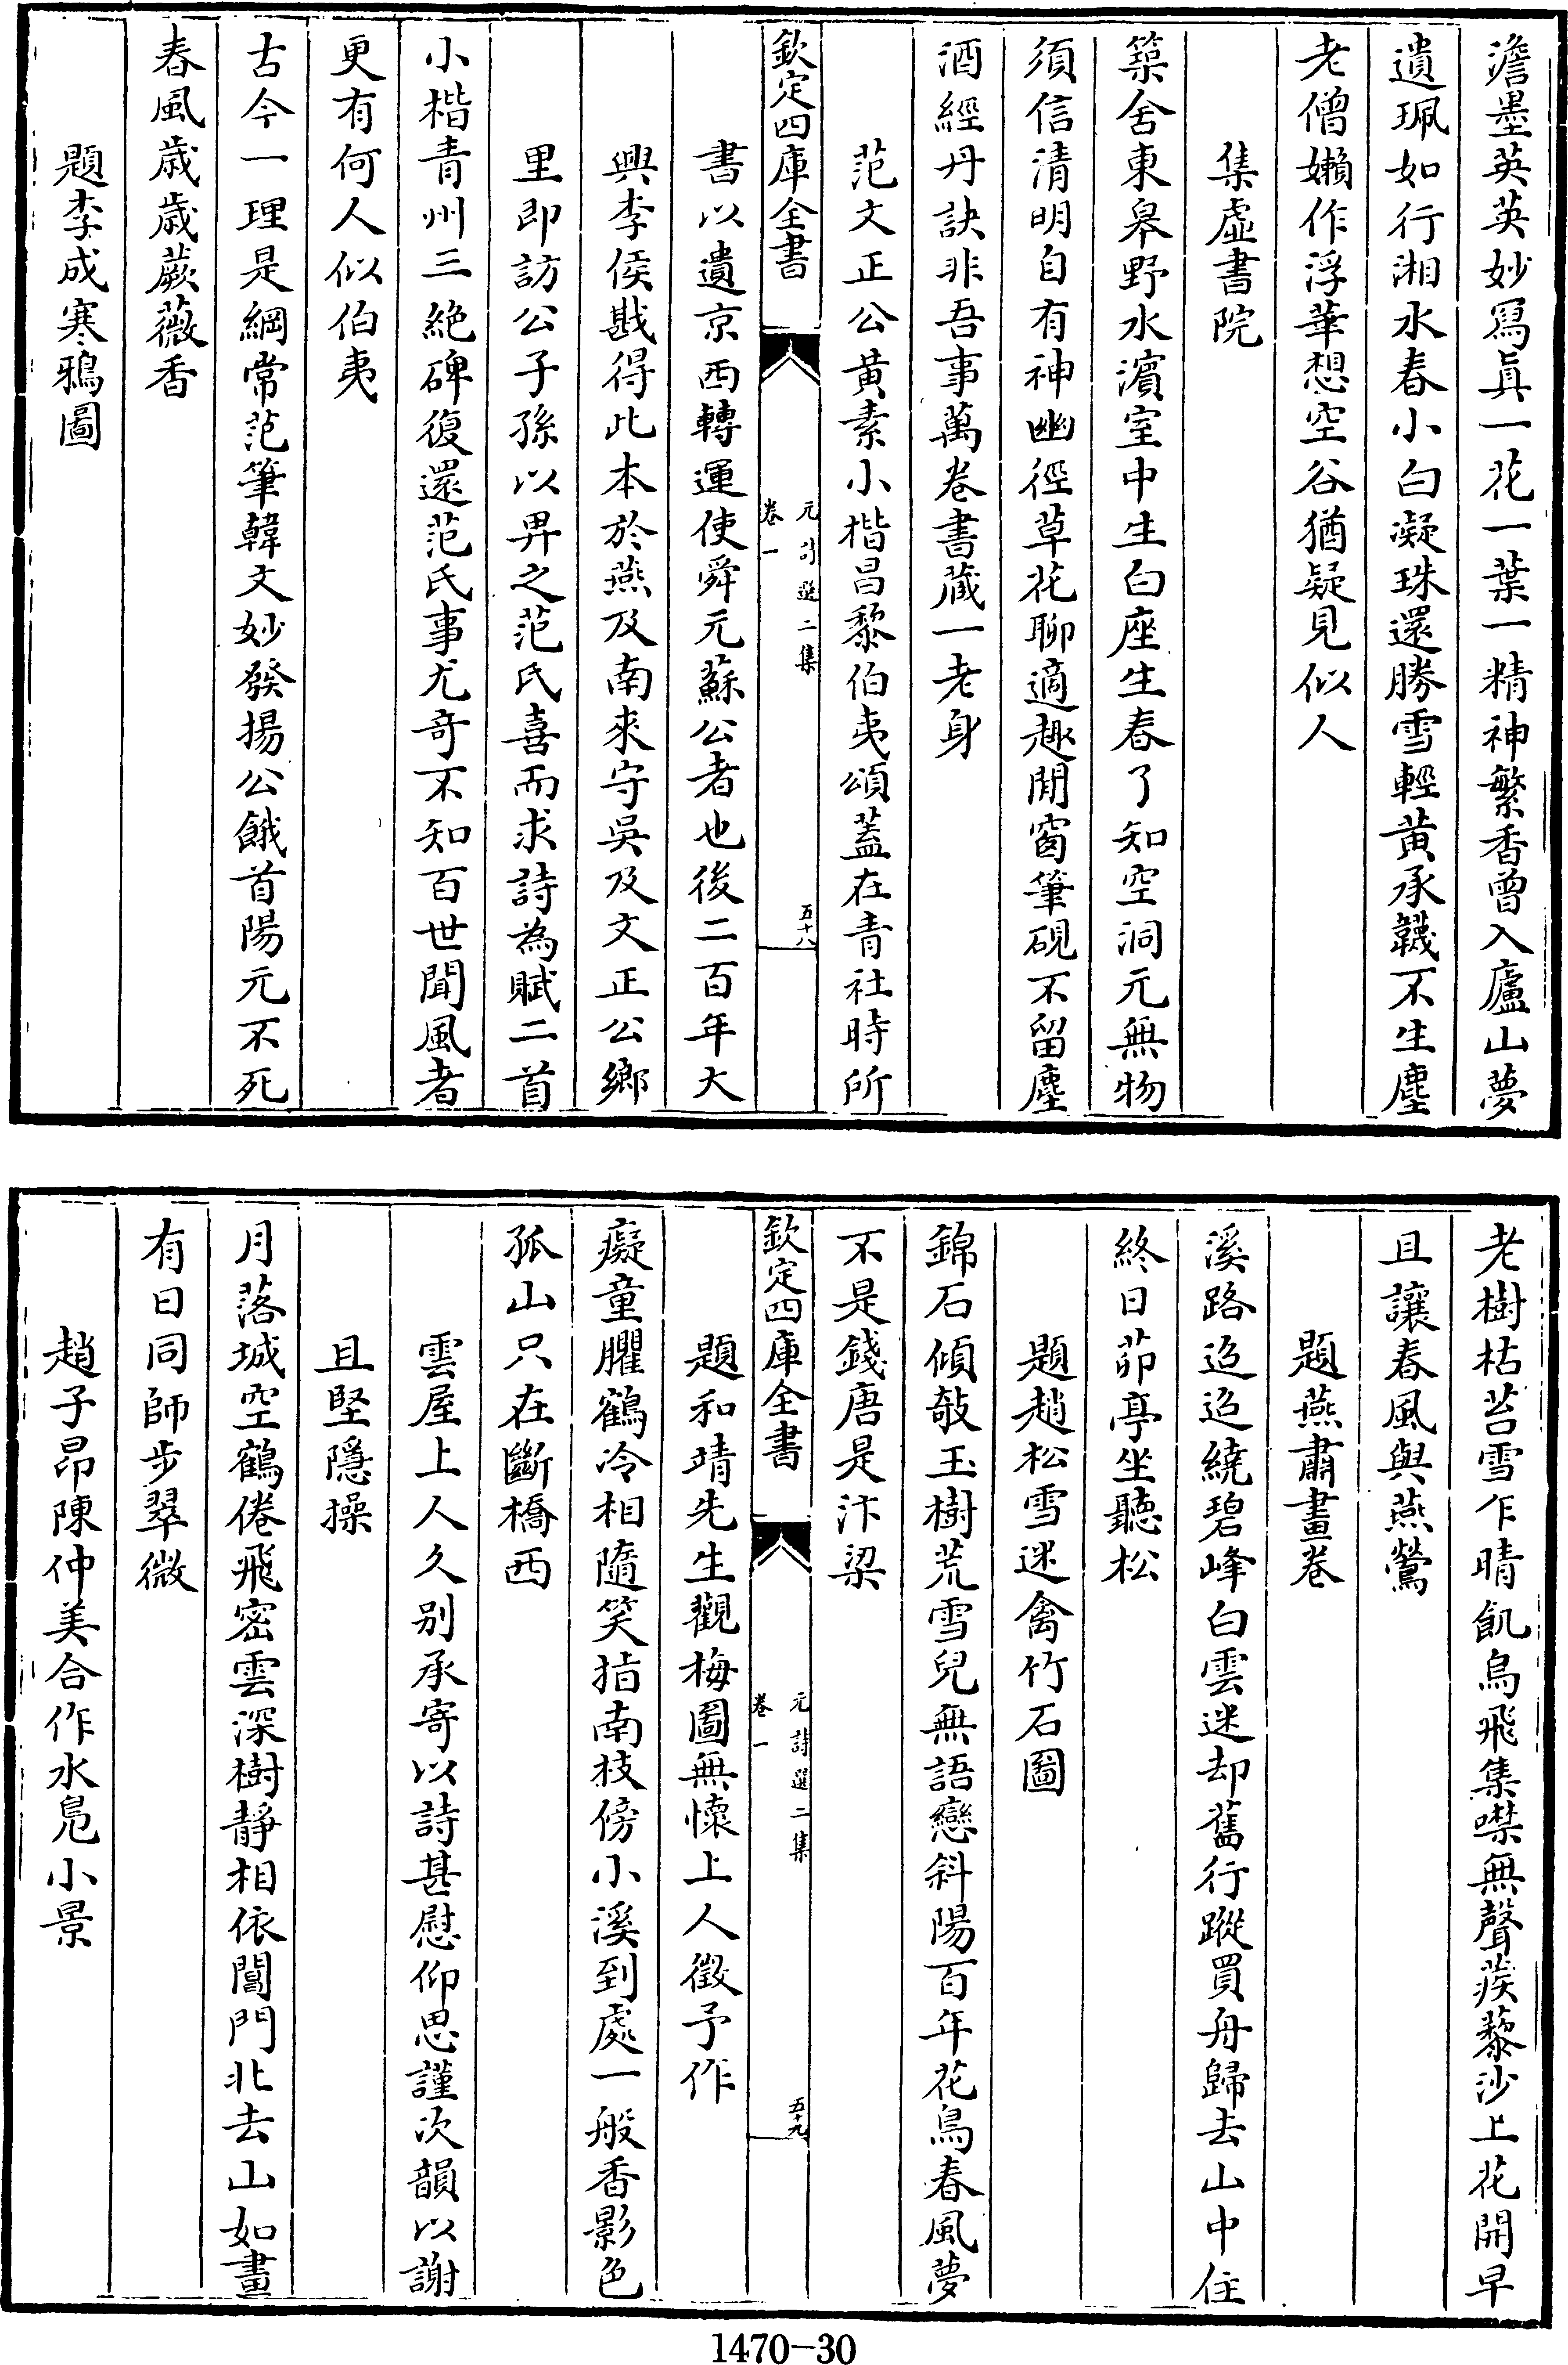 澹墨英英妙寫真一花一葉一精神繁香曾入廬山夢
遺珮如行湘水春小白凝珠還勝雪輕黃承韈不生塵
老僧嬾作浮華想空谷猶疑見似人
集虛書院
築舍東皋野水濱室中生白座生春了知空洞元無物
須信清明自有神幽徑草花聊適趣閒窗筆硯不留塵
酒經丹訣非吾事萬卷書藏一老身
范文正公黃素小楷昌黎伯夷頌蓋在青社時所
欽定四庫全書
元詩選二集
卷一
五十八
書以遺京西轉運使舜元蘇公者也後二百年大
興李侯戡得此本於燕及南來守吳及文正公鄉
里即訪公子孫以畀之范氏喜而求詩為賦二首
小楷青州三絶碑復還范氏事尤奇不知百世聞風者
更有何人似伯夷
古今一理是綱常范筆韓文妙發揚公餓首陽元不死
春風歳歳蕨薇香
題李成寒鴉圖
老樹枯苔雪乍晴飢烏飛集噤無聲蒺藜沙上花開早
且讓春風與燕鶯
題燕肅畫卷
溪路迢迢繞碧峰白雲迷却舊行蹤買舟歸去山中住
終日茆亭坐聽松
題趙松雪迷禽竹石圖
錦石傾敧玉樹荒雪兒無語戀斜陽百年花鳥春風夢
不是錢唐是汴梁
欽定四庫全書
元詩選二集
卷一
五十九
題和靖先生觀梅圖無懷上人徵予作
癡童臞鶴冷相隨笑指南枝傍小溪到處一般香影色
孤山只在斷橋西
雲屋上人久别承寄以詩甚慰仰思謹次韻以謝
且堅隱操
月落城空鶴倦飛密雲深樹靜相依閶門北去山如畫
有日同師步翠微
趙子昂陳仲美合作水鳧小景
1470-30